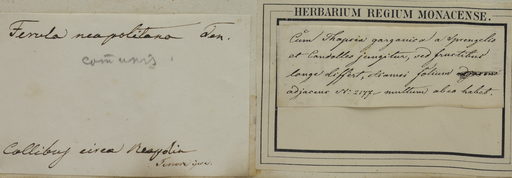 Ferula neapolitana Ten.
comunis.
Collibus circa Neapolin
Tenore
HERBARIUM REGIUM MONACENSE.
Cum Thapsia garganica a Sprengelio
et Candolleo jungitur, sed fructibus
longe differt, etiamsi folium
adjacens No. 2177. multum alia habet.